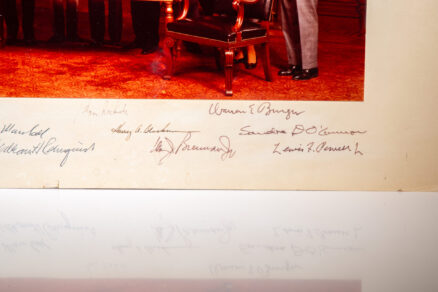 Ron Reagan Warren E Burger
Marshall Harry A. Blackmun Sandra D O'Connor
Rehnquist Wm. J. Brennan Jr Lewis F. Powell Jr